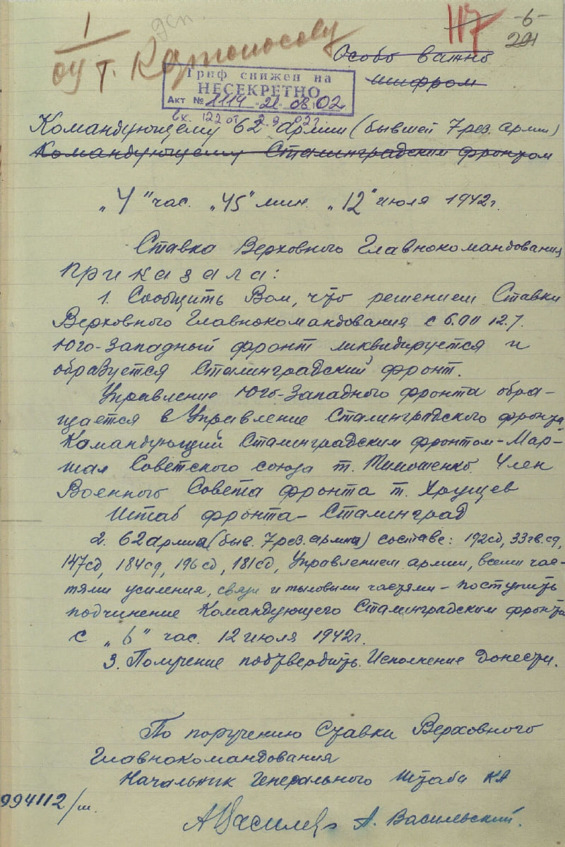 117
-6-
221
1
оу т. Карпоносову
Особо важно
шифром
Гриф снижен на
НЕСЕКРЕТНО
Акт № 1119 21.08.02
Командующему 62 армии (бывшей 7 рез. армии)
Командующему Сталинградским фронтом
"4" час. "45" мин. "12" июля 1942г.
Ставка Верховного Главнокомандования
приказала:
1. Сообщить Вам, что решением Ставки
Верховного Главнокомандования с 6.00 12.7.
Юго-Западный фронт ликвидируется и
образуется Сталинградский фронт.
Управление Юго-Западного фронта обра-
щается в Управление Сталинградского фронта
Командующий Сталинградским фронтом – Мар-
шал Советского союза т. Тимошенко Член
Военного Совета фронта т. Хрущев
Штаб фронта – Сталинград
2. 62 армия (быв. 7 рез. армия) составе: 192сд, 33гв.сд,
147сд, 184сд, 196сд, 181сд, Управлением армии, всеми час-
тями усиления, связи и тыловыми частями – поступить
подчинение Командующего Сталинградским фронтом
с "6" час. 12 июля 1942г.
3. Получение подтвердить. Исполнение донести.
По поручению Ставки Верховного
Главнокомандования
Начальник Генерального Штаба КА
994112/ш.
А. Василевский.